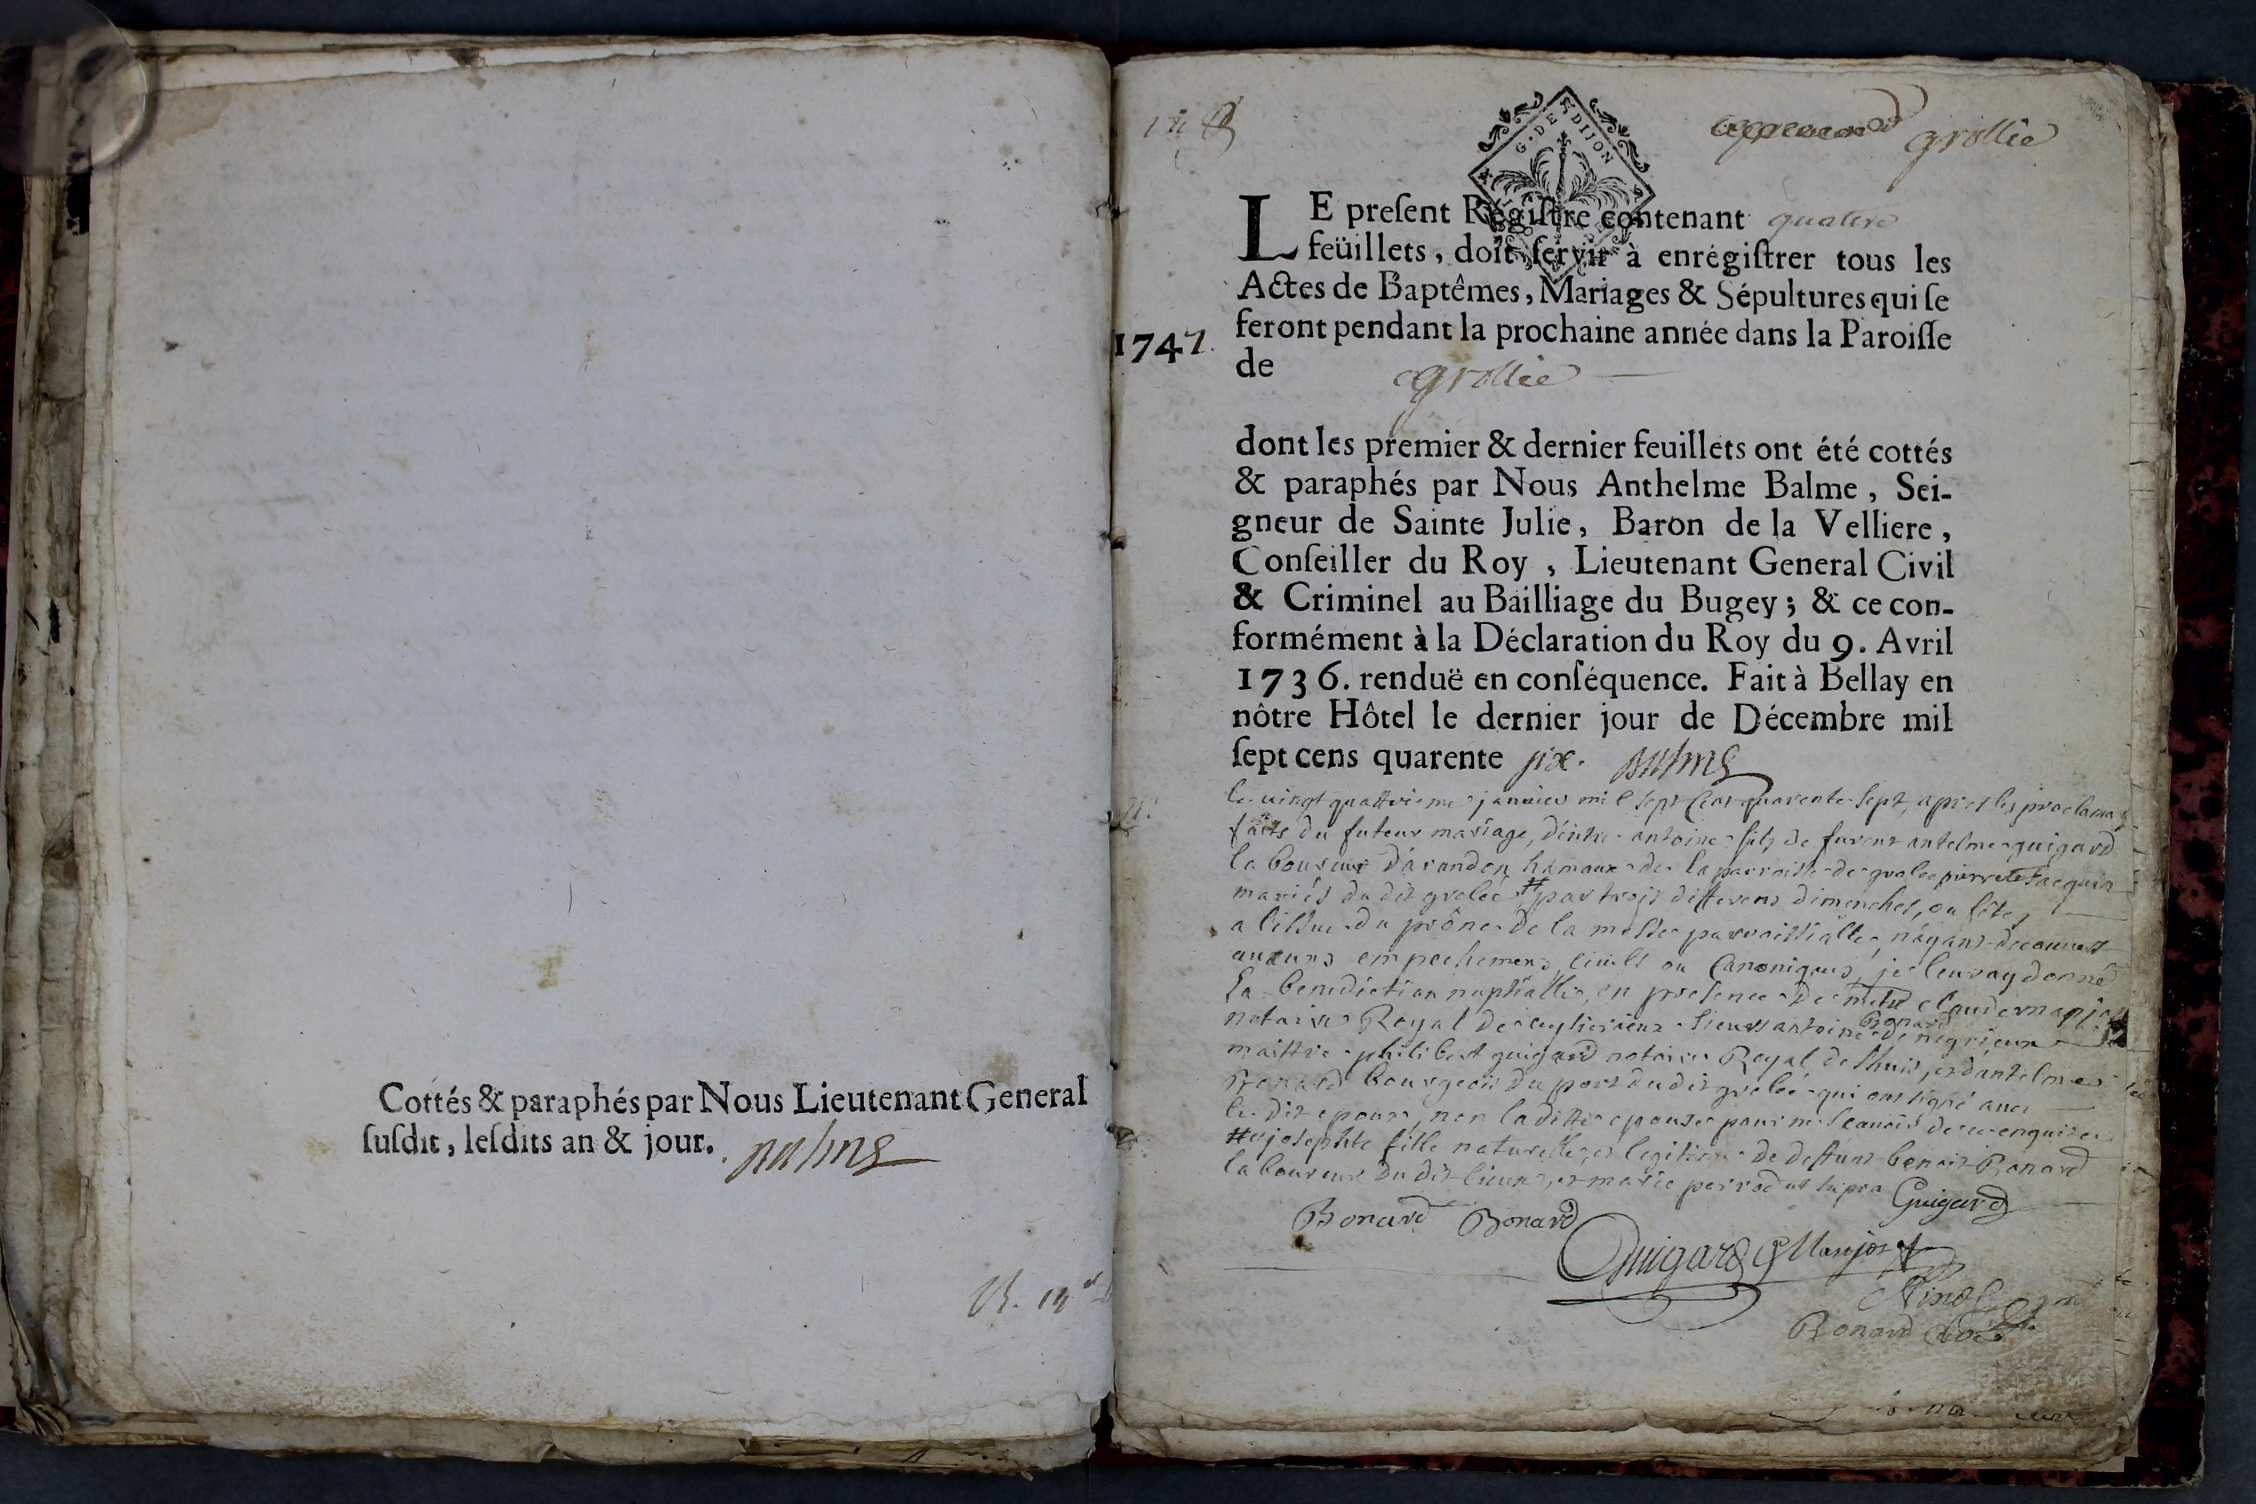 Cottés & paraphés par Nous Lieutenant General
ſuſdit, leſdits an & jour. Balme
grollie
G. DE DIJON
LE preſent Régiſtre contenant quatre
feüillets, doit ſervir à enrégiſtrer tous les
Actes de Baptêmes, Mariages & Sépultures qui ſe
feront pendant la prochaine année dans la Paroiſſe
1747
de grollie
dont les premier & dernier feuillets ont été cottés
& paraphés par Nous Anthelme Balme, Sei-
gneur de Sainte Julie, Baron de la Velliere,
Conſeiller du Roy, Lieutenant General Civil
& Criminel au Bailliage du Bugey; & ce con-
formément à la Déclaration du Roy du 9. Avril
1736. renduë en conſéquence. Fait à Bellay en
nôtre Hôtel le dernier jour de Décembre mil
ſept cens quarente six. Balme
le vingt quattrieme janvier mil sept cens quarente sept, apres les proclama
faits du futeur mariage, d'entre antoine fils de furent antelme guigard
laboureur d'arandon hamaux de la parroisse de grolee pierrete Jacquin
mariés du dit grolée # par trois differens dimenches, ou fêtes
a l'issue du prône de la messe parroissialle, n'ayant decouvert
aucuns empechemens civils ou Canoniques, je leur ay donné
la benediction nuptialle, en presence de claude
notaire Royal de sieur antoine Bonard de
maittre philibert guigard notaire Royal de Lhuis, et d'antelme
Bonard bourgeois du port du dit grolée qui ont signé avec
le dit epoux, non la ditte epouse pour ne scavoir de ce enquise
# josephte fille naturelle et legitime de deffunt benoit Bonard
laboureur du dit lieu et marie perrod ut supra Guigard
Bonard Bonard
Guigard
Bonard